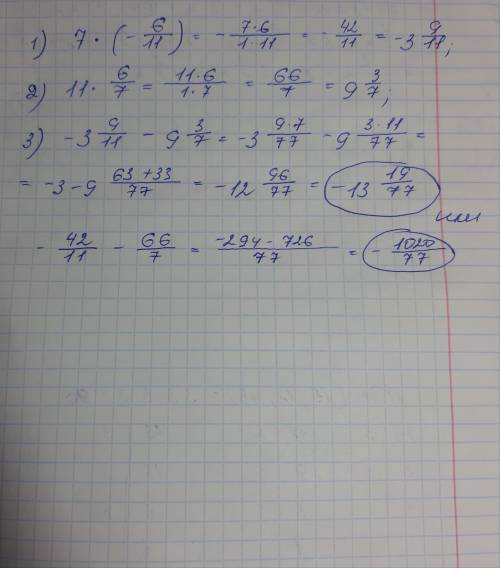 1) 7 · (- 6/11) = - 7·6/1·11 = - 42/11 = -3 9/11;
2) 11 · 6/7 = 11·6/1·7 = 66/7 = 9 3/7;
3) -3 9/11 - 9 3/7 = -3 9·7/77 - 9 3·11/77 =
= -3-9 63+33/77 = -12 96/77 = -13 19/77
или
- 42/11 - 66/7 = -294-726/77 = - 1020/77